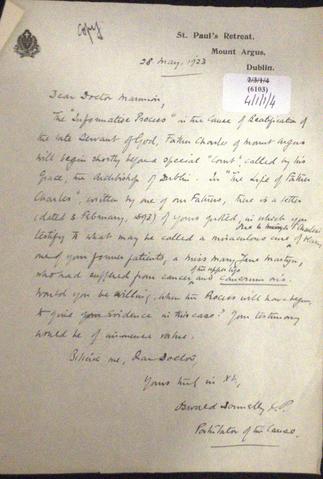 Copy
St. Paul's Retreat,
Mount Argus,
Dublin.
28 May, 1923
2/3/1/4
(6103)
4/1/1/4
Dear Doctor
The "Informative Process" in the Cause of Beatification of
the late Servant of God, Father Charles of Mount Argus
will begin shortly before a special "Court", called by his
Grace, the Archbishop of Dublin. In "The Life of Father
Charles", written by one of our Fathers, there is a letter
(dated 3 February, 1893) of yours quoted, in which you
testify to what may be called a miraculous cure of
one of your former patients, a Miss Mary Jane Martyn,
who had suffered from cancer and cancrum oris.
of the upper lip
Would you be willing, when the Process will have begun,
to give your Evidence in this case? Your testimony
would be of immense value.
Believe me, Dear Doctor,
Yours truly in Xt,
Oswald Donnelly C.P.
Postulator of the Cause.